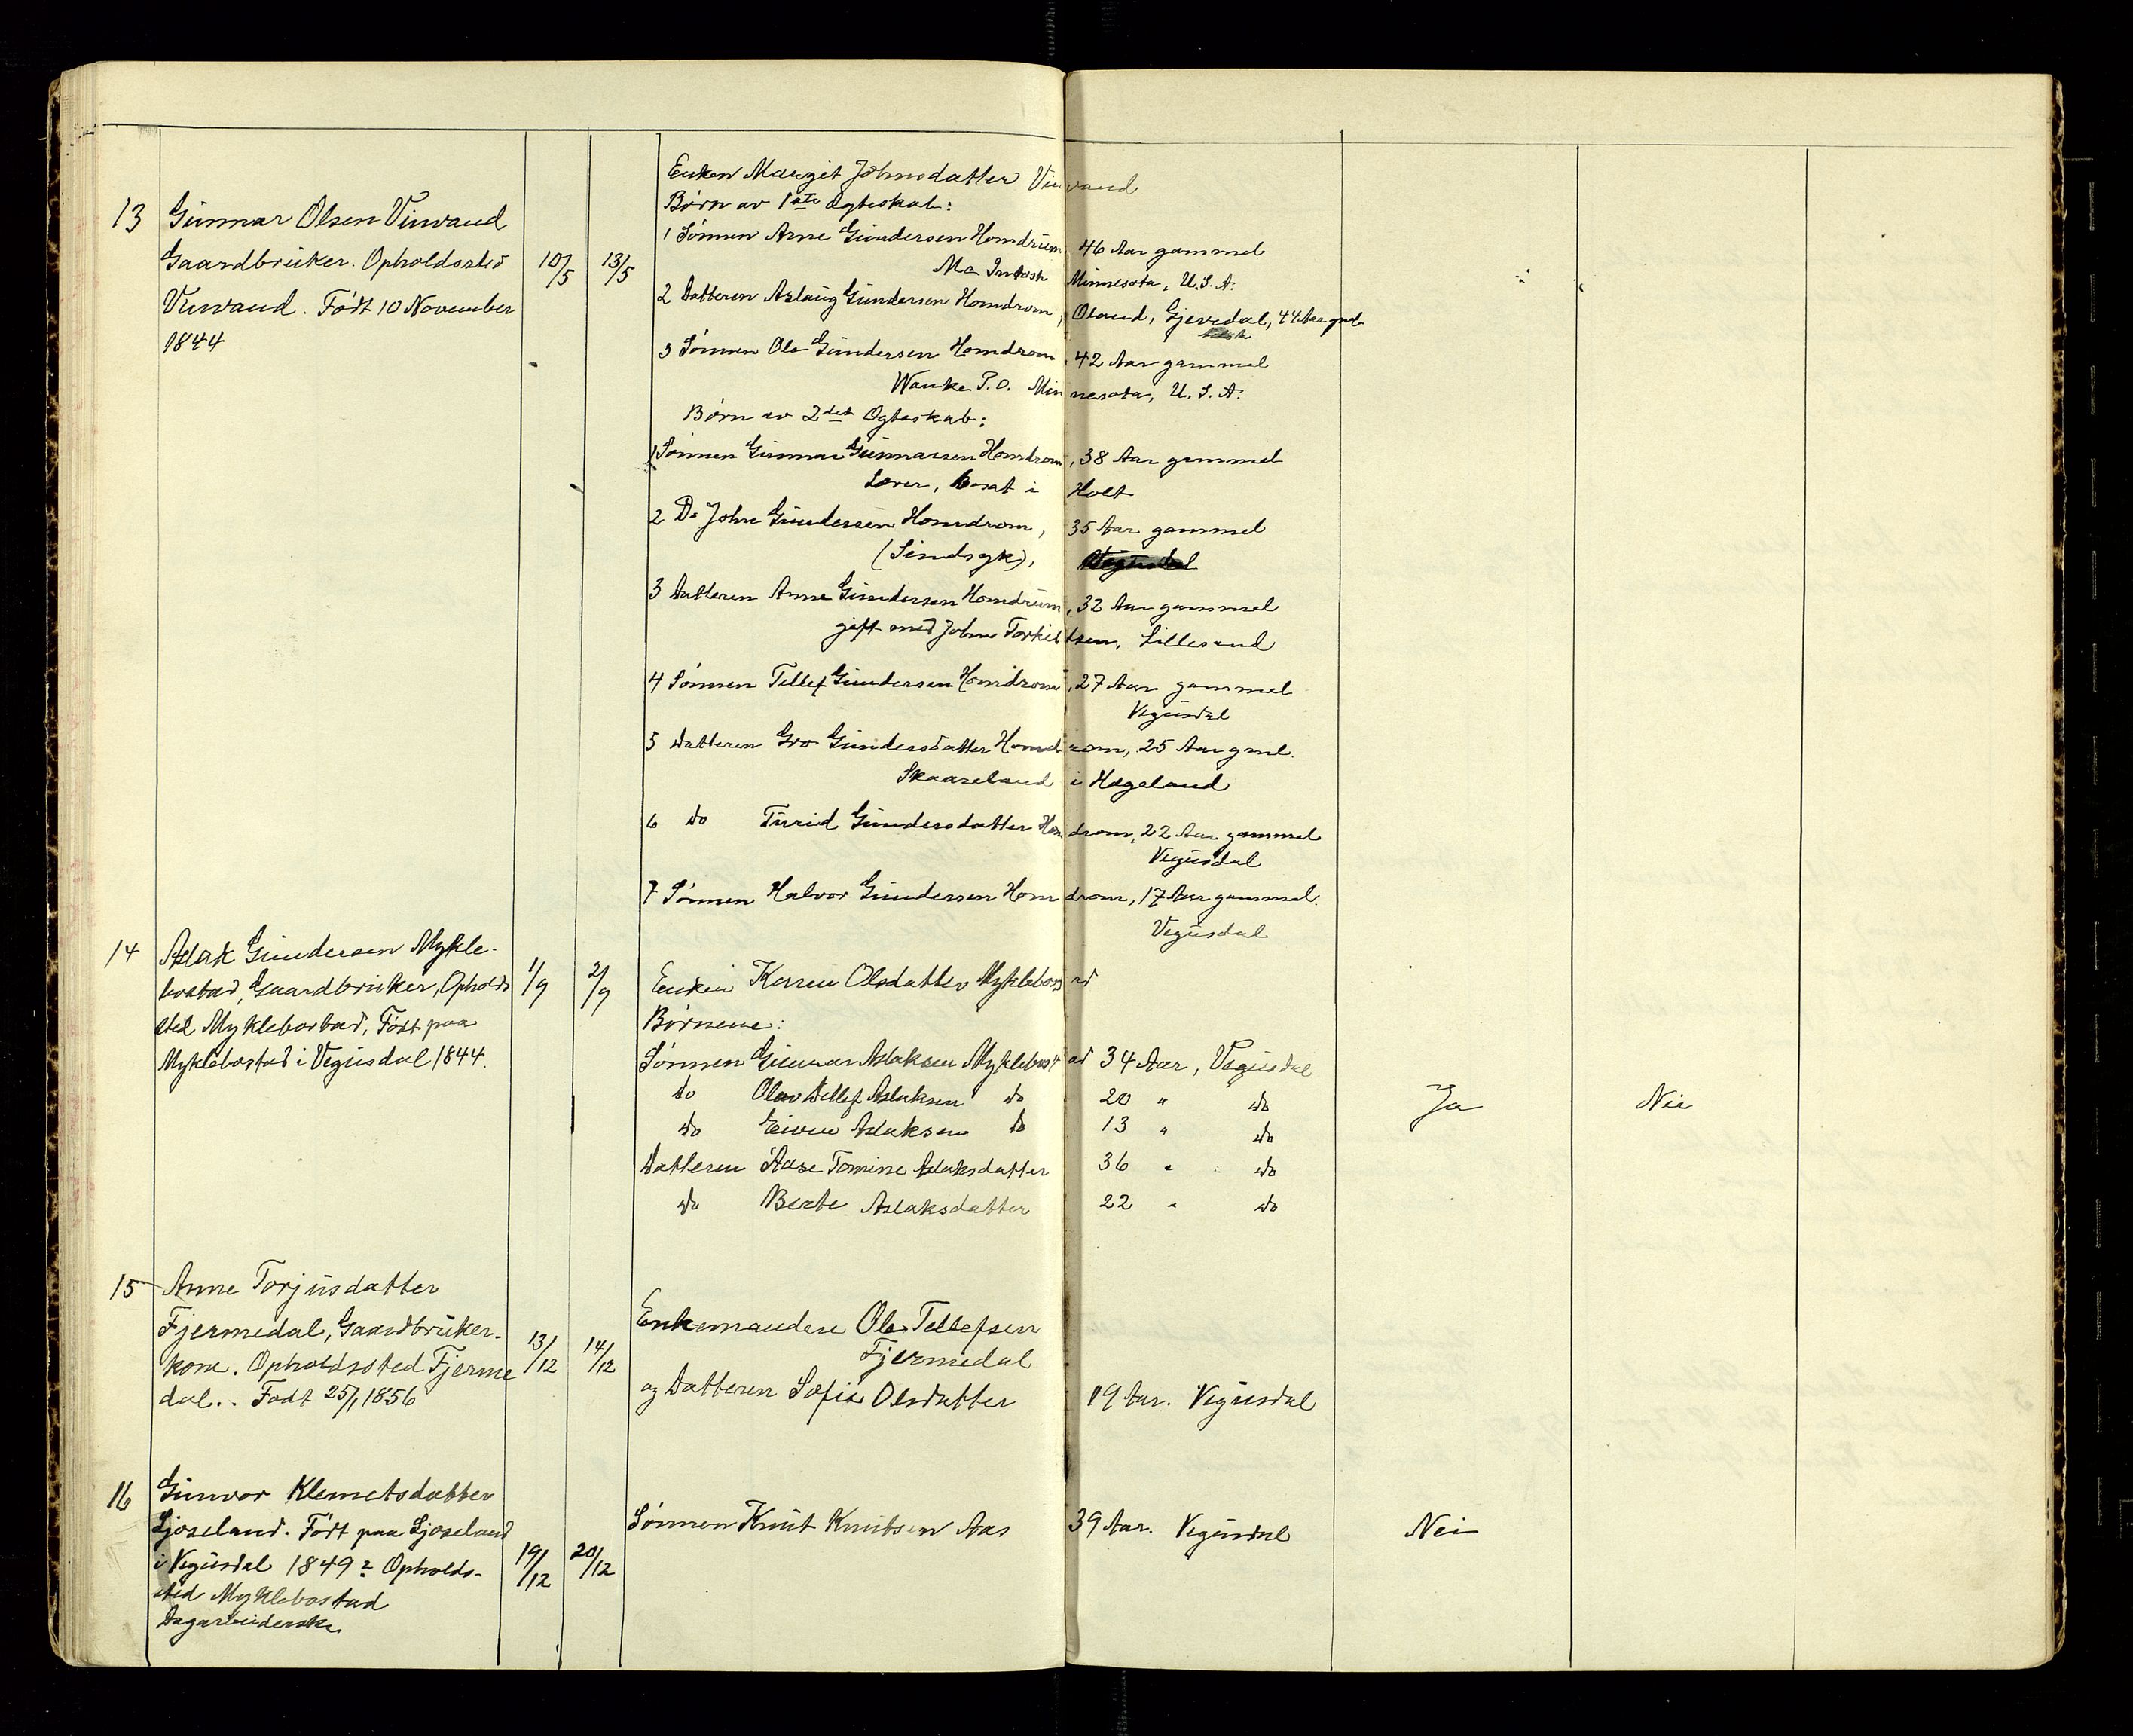 Enken Margit Johnsdatter Vinvand
Børn av 1ste Ægteskab:
13 Gunnar Olsen Vinvand
Gaardbruker. Opholdssted
Vinvand. Født 10 November
1844
10/5 13/5
1 Sønnen Arne Gundersen Homdrum, 46 Aar gammel
Mc Intosh Minnesota, U.S.A.
2 Datteren Aslaug Gundersen Homdrom, Osand, Gjevedal, 44 Aar gml.
3 Sønnen Ole Gundersen Homdrom, 42 Aar gammel
Wanke P.O. Minnesota, U.S.A.
Børn av 2det Ægteskab:
1 Sønnen Gunnar Gunnarsen Homdrom, 38 Aar gammel
Lærer, bosat i Holt
2 Do John Gundersen Homdrom, 35 Aar gammel
(Sindsyk), Vegusdal
3 Datteren Anne Gundersen Homdrum, 32 Aar gammel
gift med John Torkildsen, Lillesand
4 Sønnen Tellef Gundersen Homdrom, 27 Aar gammel
Vegusdal
5 Datteren Gro Gundersdatter Homdrom, 25 Aar gml.
Skaareland i Hægeland
6 do Turid Gundersdatter Homdrom, 22 Aar gammel
Vegusdal
7 Sønnen Halvor Gundersen Homdrom, 17 Aar gammel.
Vegusdal
14 Aslak Gundersen Mykle-
bostad, Gaardbruker, Opholds
sted Myklebostad, Født paa
Myklebostad i Vegusdal 1844.
1/9 2/9
Enken Karen Olsdatter Myklebostad
Børnene:
Sønnen Gunnar Aslaksen Myklebostad 34 Aar, Vegusdal
do Olav Tellef Aslaksen do 20 " do
Ja Nei
do Eivin Aslaksen do 13 " do
Datteren Aase Tomine Aslaksdatter 36 " do
do Berte Aslaksdatter 22 " do
15 Anne Torjusdatter
Fjermedal, Gaardbruker-
kone. Opholdssted Fjerme
dal.. Født 25/1 1856
13/12 14/12
Enkemanden Ole Tellefsen
Fjermedal
og Datteren Sofie Olsdatter 19 Aar. Vegusdal
16 Gunvor Klemetsdatter
Ljoseland. Født paa Ljoseland
i Vegusdal 1849? Opholds-
sted Myklebostad
Dagarbeiderske
19/12 20/12
Sønnen Knut Knutsen Aas 39 Aar. Vegusdal Nei